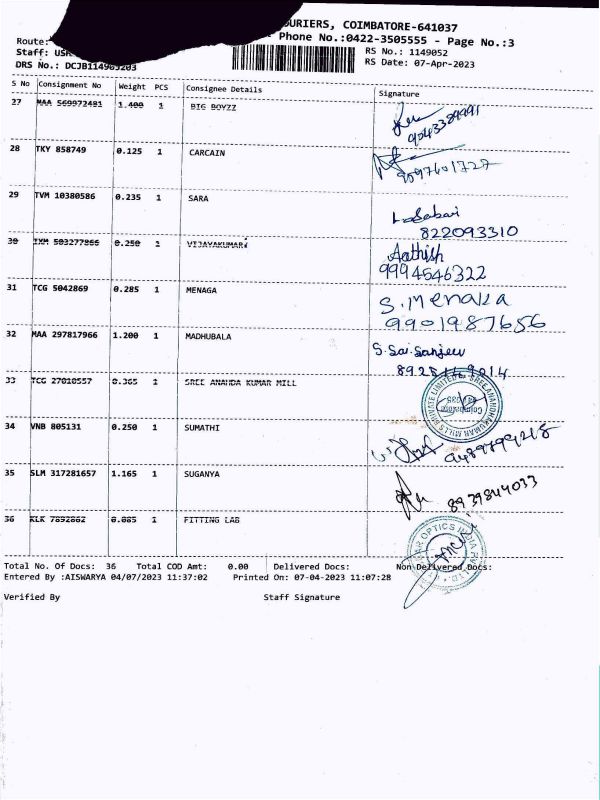 OURIERS, COIMBATORE-641037
Route:
Phone No.:0422-3505555 - Page No.:3
Staff:
RS No.: 1149052
DRS No.:
RS Date: 07-Apr-2023
S No Consignment No Weight PCS Consignee Details Signature
27 MAA 569972481 1.400 1 BIG BOYZZ
9543389991
28 TKY 858749 0.125 1 CARCAIN
9597601727
29 TVM 10380586 0.235 1 SARA
822093310
30 IXM 503277866 0.250 1 VIJAYAKUMARI
Aathish
9994646322
31 TCG 5042869 0.285 1 MENAGA
S. Menaka
9901987656
32 MAA 297817966 1.200 1 MADHUBALA
S. Sai Sanjeev
33 TCG 27010557 0.365 1 SREE ANANDA KUMAR MILL
SREE ANANDHAKUMAR MILLS PRIVATE LIMITED
Coimbatore
34 VNB 805131 0.250 1 SUMATHI
9489799215
35 SLM 317281657 1.165 1 SUGANYA
8939844033
36 KLK 7892862 0.085 1 FITTING LAB
OPTICS INDIA PVT. LTD.
Total No. Of Docs: 36 Total COD Amt: 0.00 Delivered Docs: Non Delivered Docs:
Entered By :AISWARYA 04/07/2023 11:37:02 Printed On: 07-04-2023 11:07:28
Verified By Staff Signature